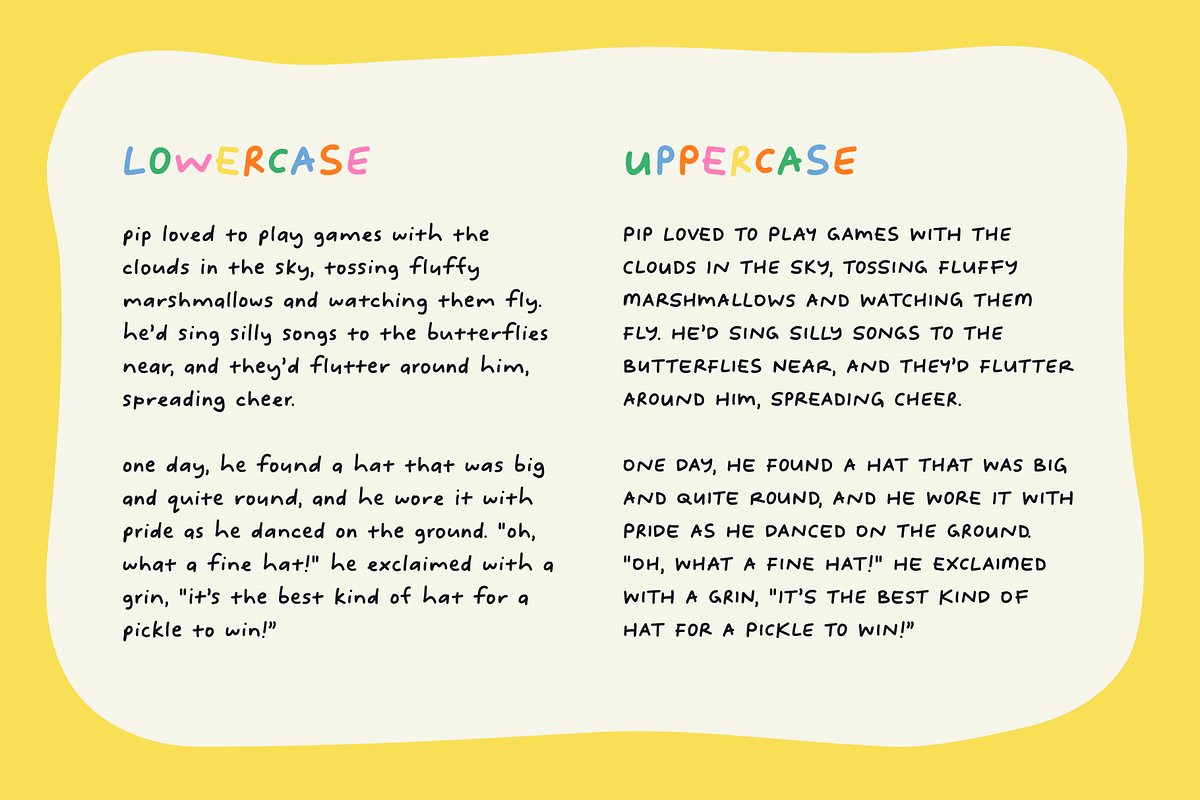 LOWERCASE
pip loved to play games with the
clouds in the sky, tossing fluffy
marshmallows and watching them fly.
he'd sing silly songs to the butterflies
near, and they'd flutter around him,
spreading cheer.
one day, he found a hat that was big
and quite round, and he wore it with
pride as he danced on the ground. "oh,
what a fine hat!" he exclaimed with a
grin, "it's the best kind of hat for a
pickle to win!”
UPPERCASE
PIP LOVED TO PLAY GAMES WITH THE
CLOUDS IN THE SKY, TOSSING FLUFFY
MARSHMALLOWS AND WATCHING THEM
FLY. HE'D SING SILLY SONGS TO THE
BUTTERFLIES NEAR, AND THEY'D FLUTTER
AROUND HIM, SPREADING CHEER.
ONE DAY, HE FOUND A HAT THAT WAS BIG
AND QUITE ROUND, AND HE WORE IT WITH
PRIDE AS HE DANCED ON THE GROUND.
"OH, WHAT A FINE HAT!" HE EXCLAIMED
WITH A GRIN, "IT'S THE BEST KIND OF
HAT FOR A PICKLE TO WIN!”